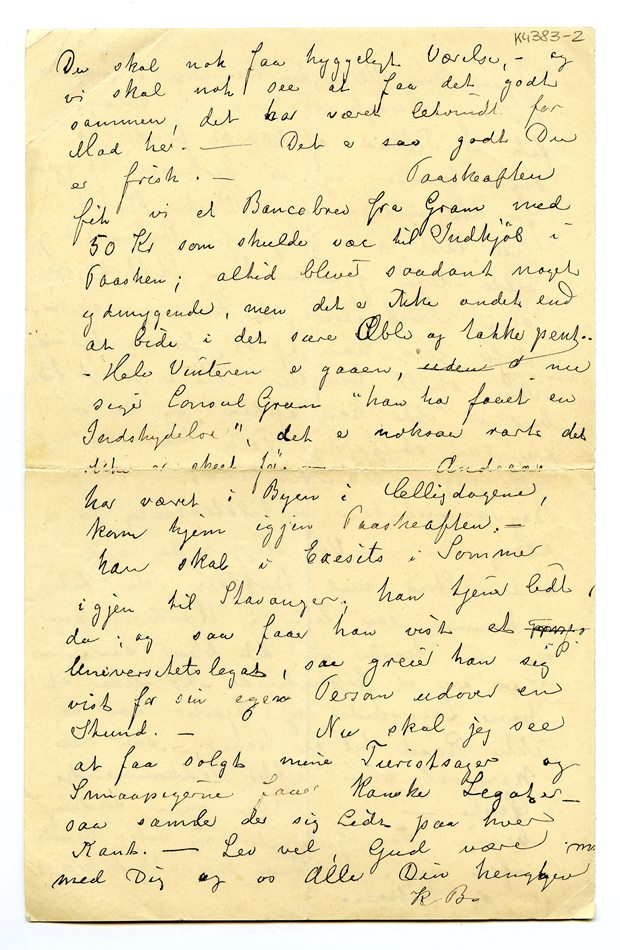 K4383-2
Du skal nok faa hyggeligt Værelse, - og
vi skal nok see at faa det godt
sammen, det har været letvindt for
Mad her. — Det e saa godt Du
er frisk. — Paaskeaften
fik vi et Bancobrev fra Gram med
50 Kr som skulde væe til Indkjöb i
Paasken; altid blevet saadant noget
ydmygende, men det e ikke andet end
at bide i det sure Æble og takke pent. -
- Hele Vinteren e gaaen, uden d nu
sige Consul Gram "han har faaet en
Indskydelse", det e noksaa rart det
er skeet för. — Andreas
har været i Byen i Helligdagene,
kom hjem igjen Paaskeaften. -
han skal i Exesits i Sommer
igjen til Stavanger. han tjene lidt
da; og saa faae han vist et
Universitetslegat, saa greie han sig
vist for sin egen Person udover en
Stund. — Nu skal jeg see
at faa solgt mine Turistsager og
Smaapigerne faae Kanske Legater -
saa samle der sig Lidt paa hver
Kant. — Lev vel, Gud være
med Dig og os Alle Din hengivne
K B.